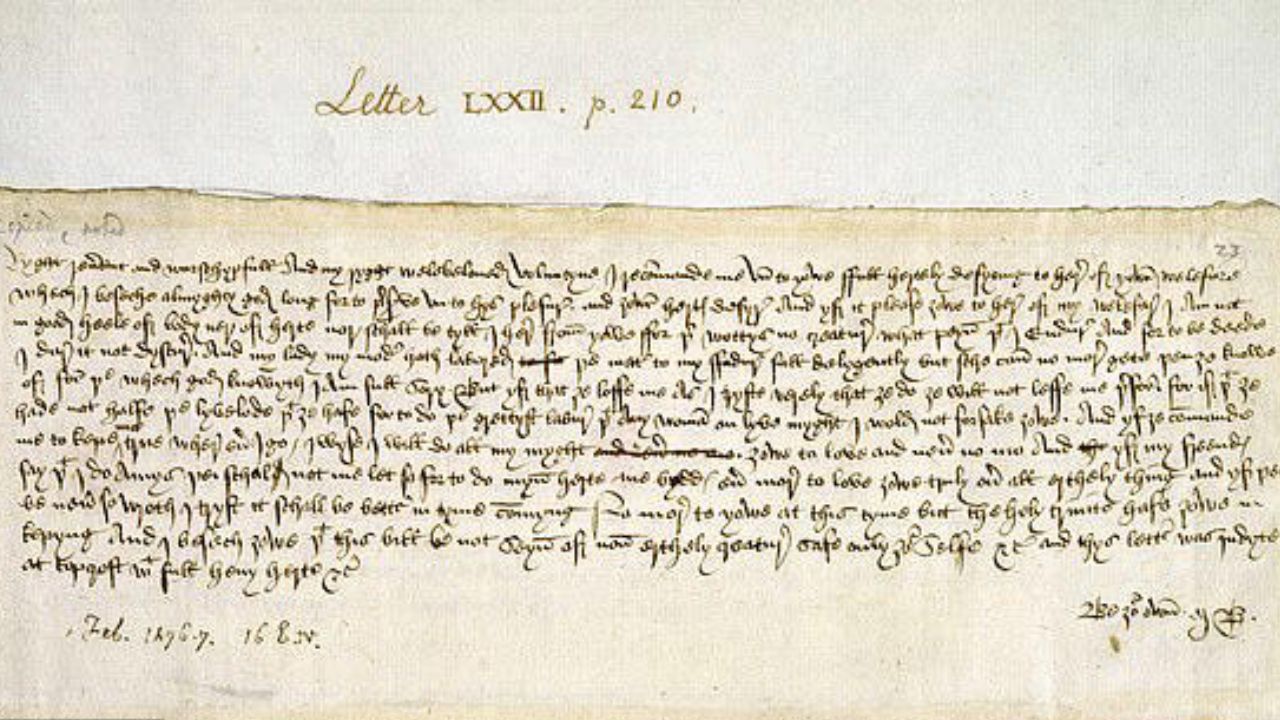 Letter LXXII. p. 210.
copied & noted
23
Ryght reuerent and wurschypfull And my ryght welebeloued Voluntyne I recomande me vn to yowe ffull hertely desyring to here of yowr welefare
whech I beseche almyghty god long for to preserve vn to hys plesur and ȝowr hertys desyre And yf it please ȝowe to here of my welefar I am not
in good heele of body ner of herte nor schall be tyll I here from yowe ffor þer wottys no creature what peyn þat I endure And for to be deede
I dure it not dyscure And my lady my moder hath labored þe mater to my ffadur full delygently but sche can no more gete þen ȝe knowe
of for þe whech god knowyth I am full sory But yf that ȝe loffe me As I tryste verely that ȝe do ȝe will not leffe me þerfor for if þat ȝe
hade not halfe þe lyvelode þat ȝe hafe for to do þe grettyst labur þat any woman on lyve myght I wold not forsake ȝowe And yf ȝe commande
me to kepe me true wherever I go I wyse I will do all my myght ȝowe to love and never no mo And yf my freendys
say þat I do Amys þei schal not me let so for to do myn herte me bydds ever more to love ȝowe truly over all erthely thing and yf þei
be never so wroth I tryst it schall be bettur in tyme commyng No more to yowe at this tyme but the holy trinite hafe ȝowe in
kepyng And I besech ȝowe þat this bill be not seyn of non erthely creatur safe only ȝour selfe &c and thys lettur was indyte
at topcroft wt full hevy herte &c
Be ȝour own MB.
Feb. 1476-7. 16 E. IV.